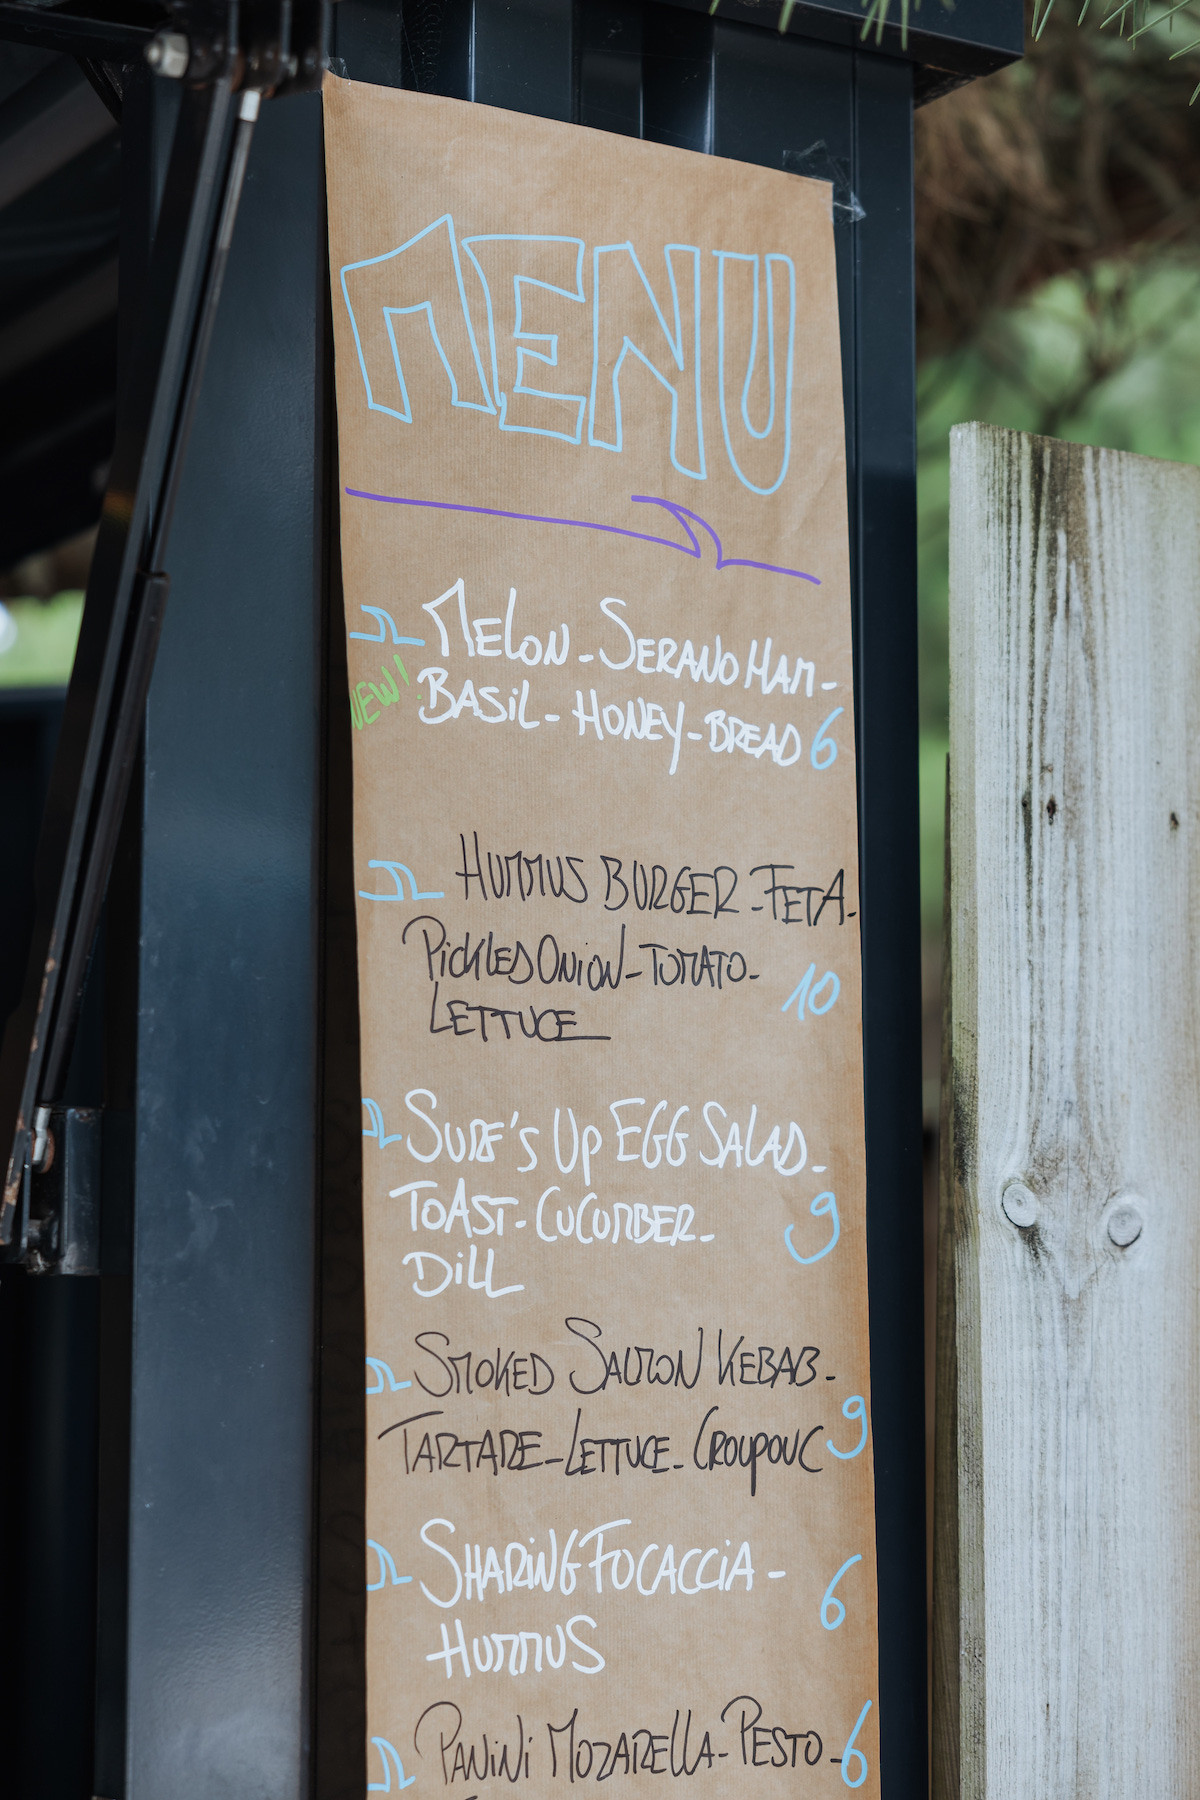 MENU
MELON - SERANO HAM -
NEW! BASIL - HONEY - BREAD 6
HUMMUS BURGER - FETA -
PICKLED ONION - TOMATO -
10
LETTUCE
SURF'S UP EGG SALAD -
TOAST - CUCUMBER - 9
DILL
SMOKED SALMON KEBAB -
TARTARE - LETTUCE - CROUPOUC 9
SHARING FOCACCIA - 6
HUMMUS
PANINI MOZARELLA - PESTO - 6